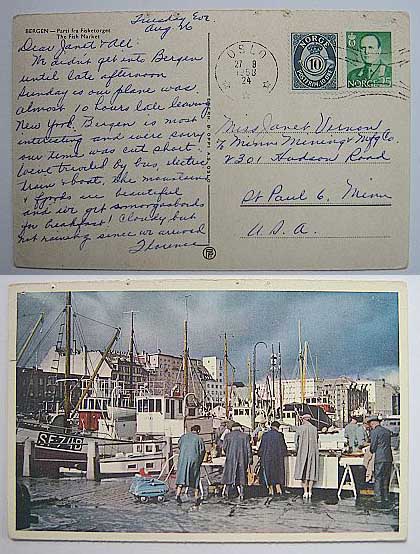 BERGEN — Parti fra Fisketorget
The Fish Market
Tuesday Eve.
Aug 26
Dear Janet & All:
We didn't get into Bergen
until late afternoon
Sunday as our plane was
almost 10 hours late leaving
New York. Bergen is most
interesting and were sorry
our time was cut short.
We've traveled by bus, electric
train & boat. The mountains
& fjords are beautiful
and we get smorgasbords
for breakfast! Cloudy but
not raining since we arrived
Florence
OSLO
27 8
1958
24
NORGE
10
NORGE
15
Miss Janet Vernon
% Minn Mining & Mfg Co.
2301 Hudson Road
St Paul 6, Minn
U.S.A.
SF-74-B